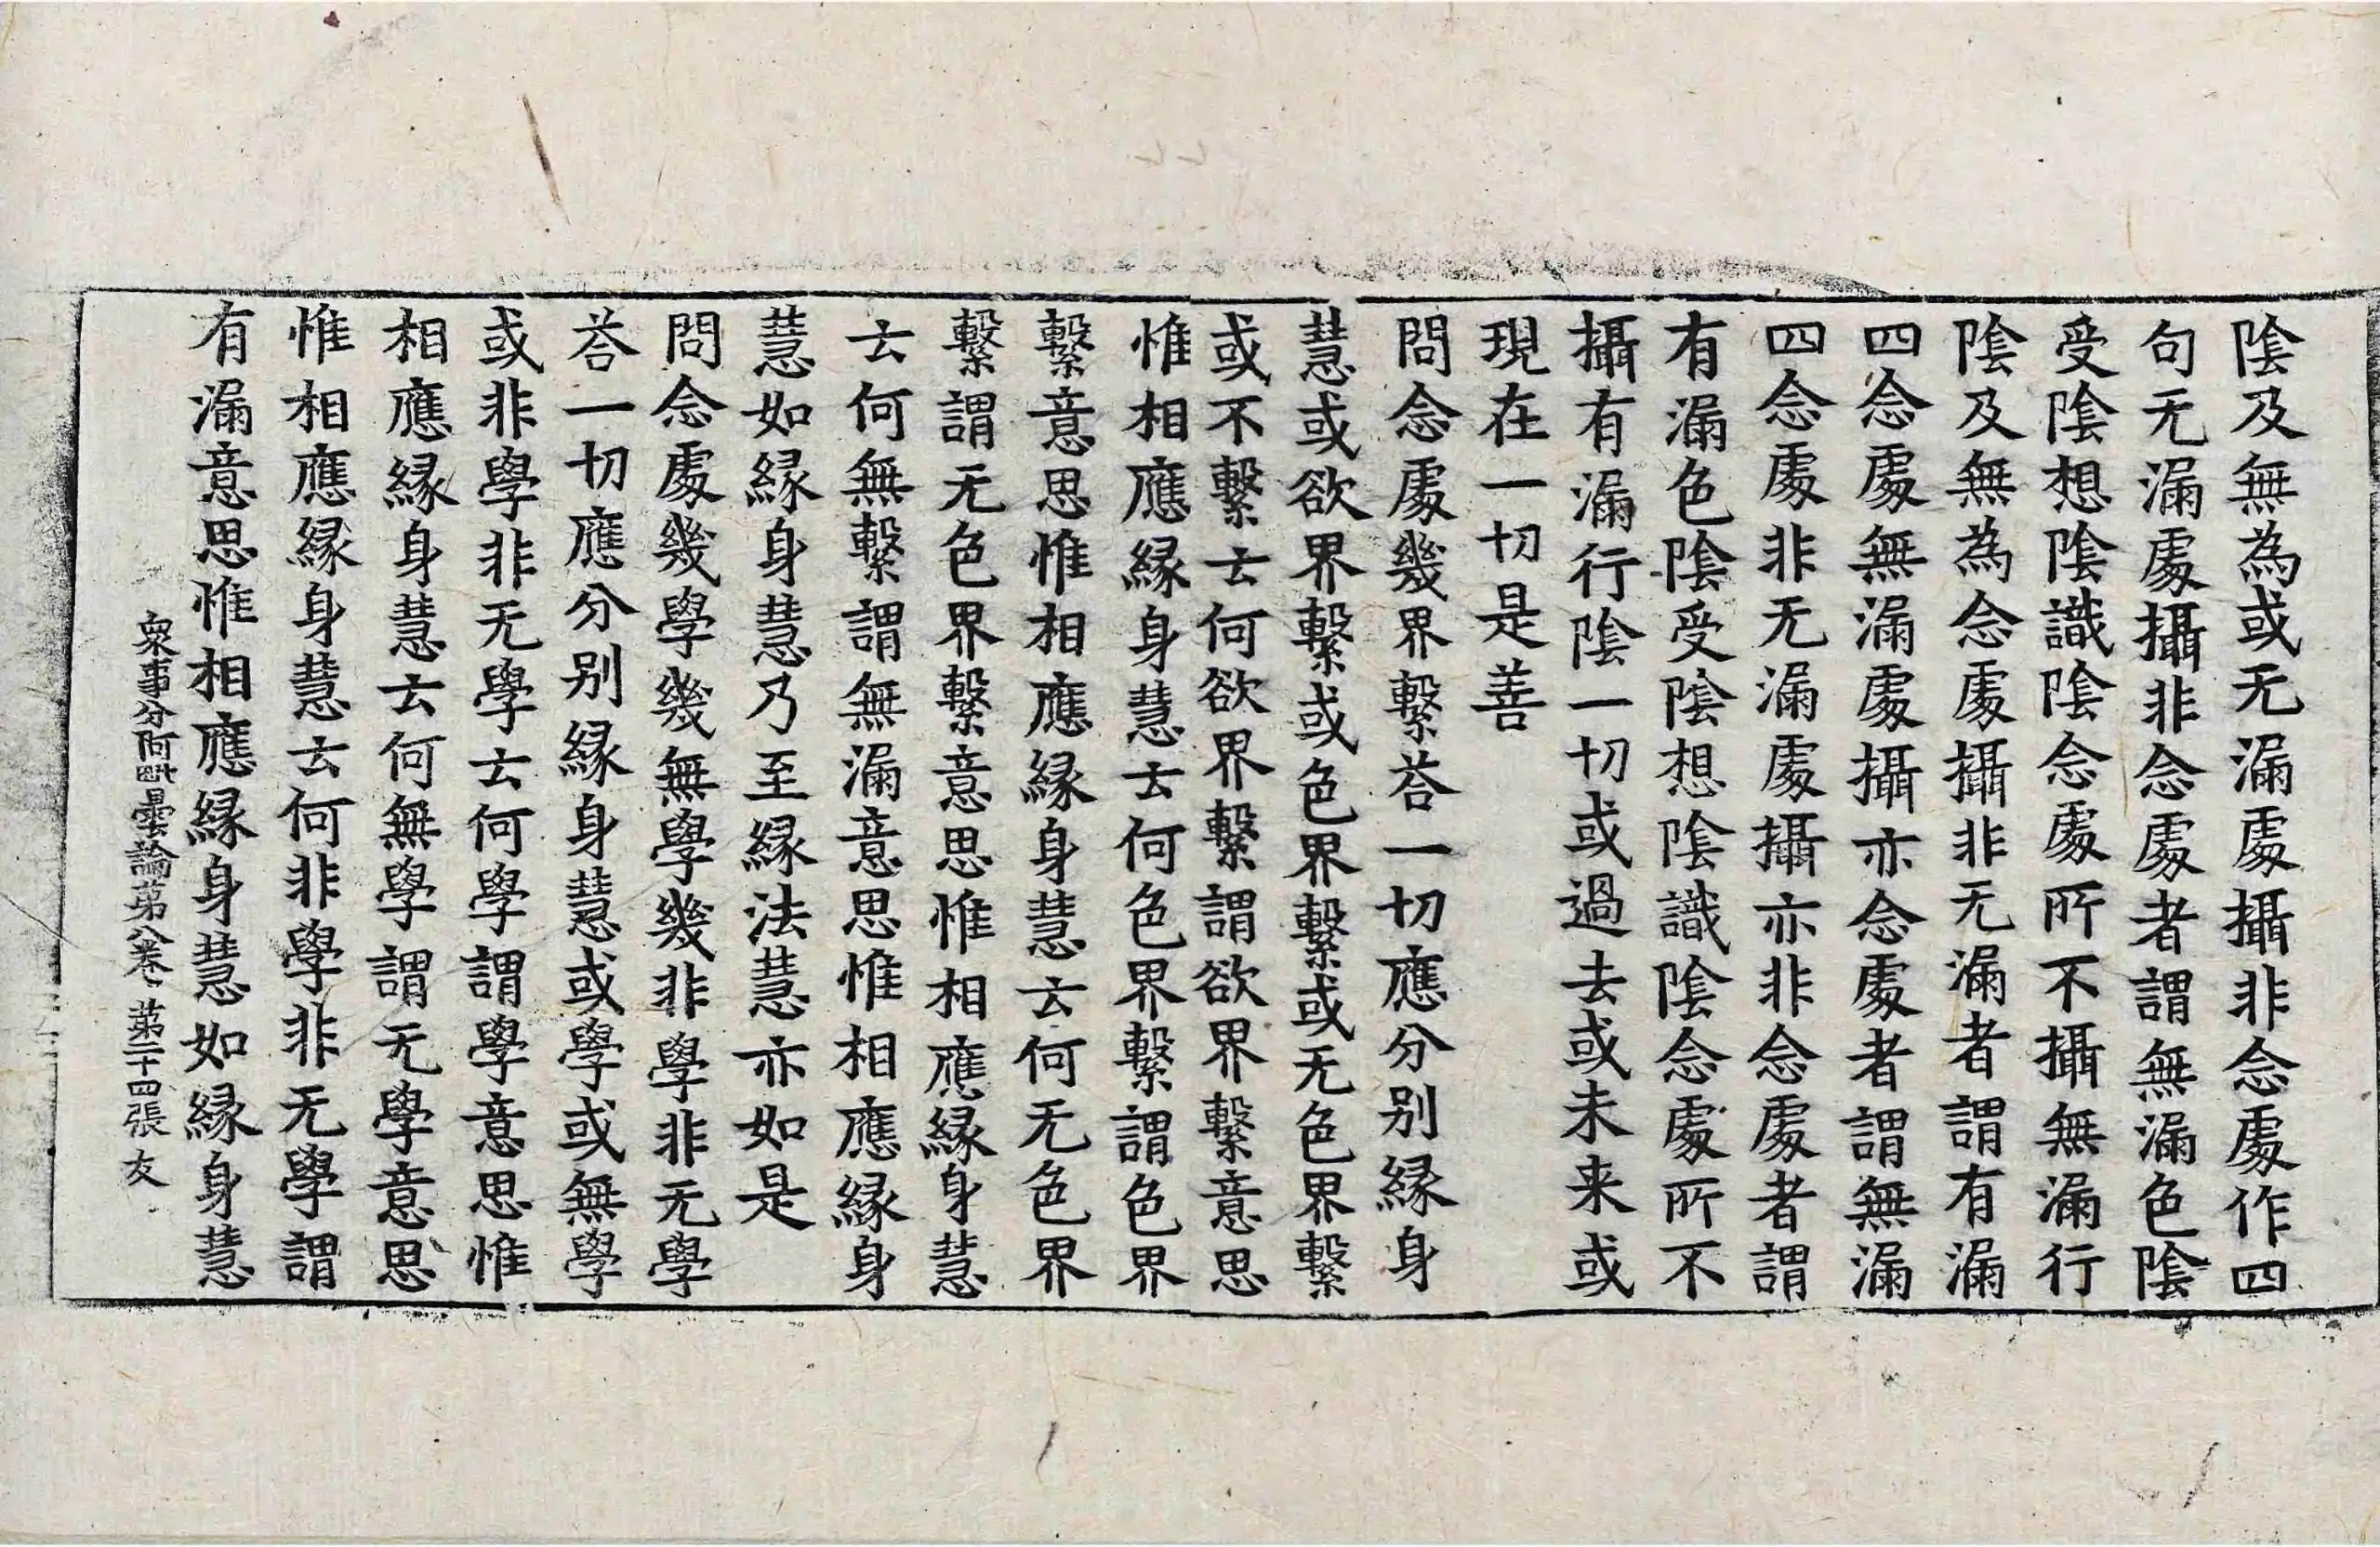 陰及無為或无漏處攝非念處作四
句无漏處攝非念處者謂無漏色陰
受陰想陰識陰念處所不攝無漏行
陰及無為念處攝非无漏者謂有漏
四念處無漏處攝亦念處者謂無漏
四念處非无漏處攝亦非念處者謂
有漏色陰受陰想陰識陰念處所不
攝有漏行陰一切或過去或未来或
現在一切是善
問念處幾界繫荅一切應分别縁身
慧或欲界繫或色界繫或无色界繫
或不繫云何欲界繫謂欲界繫意思
惟相應縁身慧云何色界繫謂色界
繫意思惟相應縁身慧云何无色界
繫謂无色界繫意思惟相應縁身慧
云何無繫謂無漏意思惟相應縁身
慧如縁身慧乃至縁法慧亦如是
問念處幾學幾無學幾非學非无學
荅一切應分别縁身慧或學或無學
或非學非无學云何學謂學意思惟
相應縁身慧云何無學謂无學意思
惟相應縁身慧云何非學非无學謂
有漏意思惟相應縁身慧如縁身慧
衆事分阿毗曇論第八卷 第二十四張 友